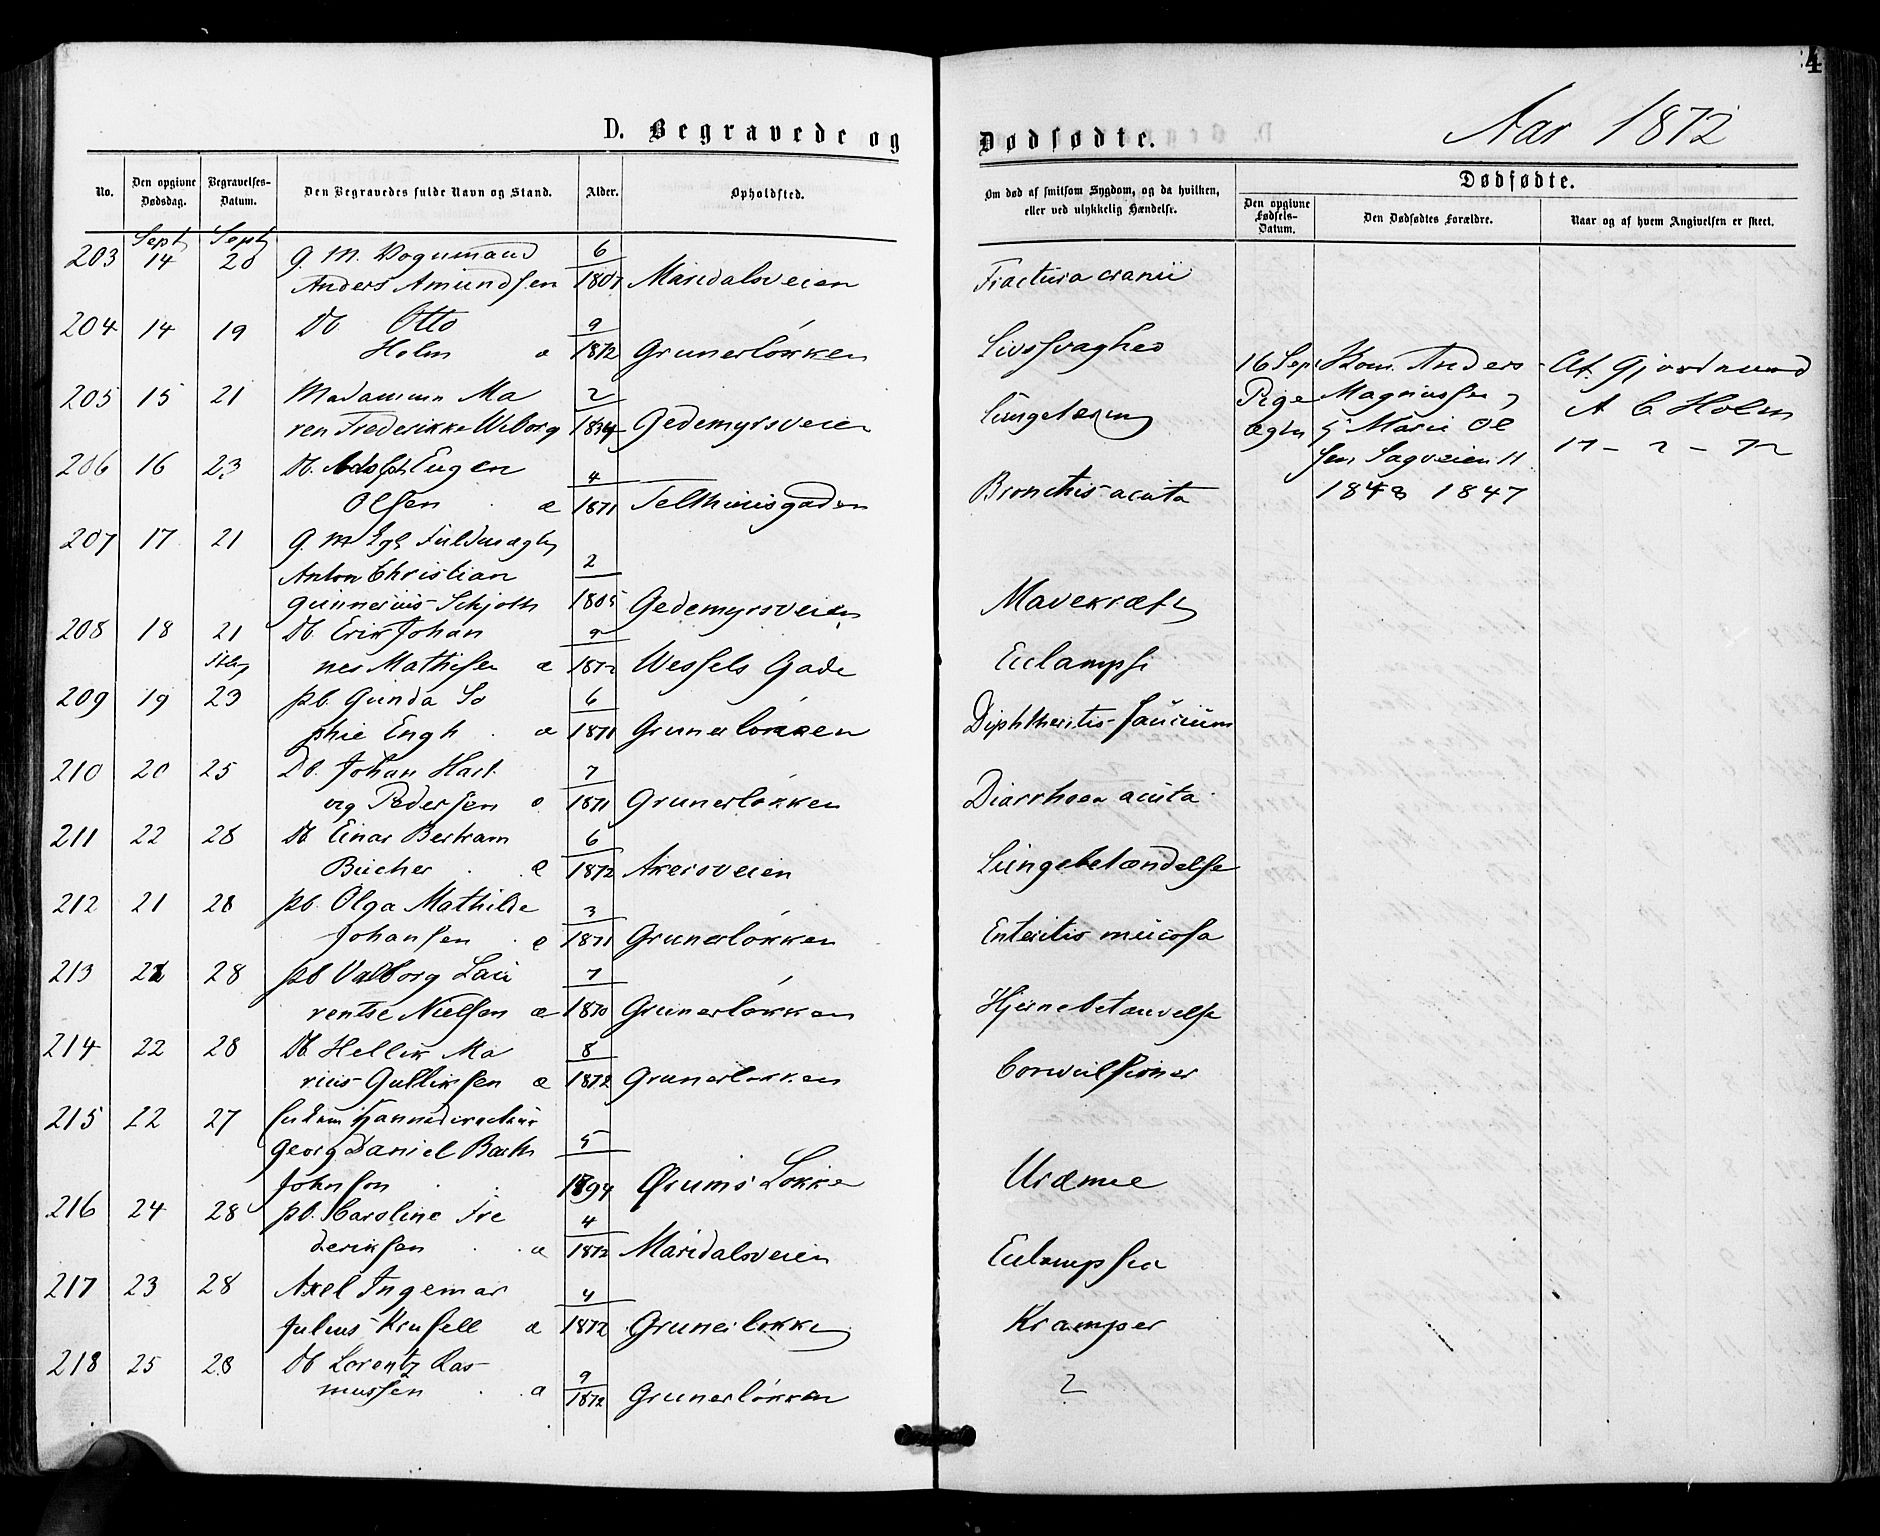 4
D. Begravede og
Dødsfødte.
Aar 1872
No.
Den opgivne Dødsdag.
Begravelses-Datum.
Den Begravedes fulde Navn og Stand.
Alder.
Opholdsted.
Om død af smitsom Sygdom, og da hvilken, eller ved ulykkelig Hændelse.
Dødfødte.
Den opgivne Fødsels-Datum.
Den Dødfødtes Forældre.
Naar og af hvem Angivelsen er skeet.
Sept Sept
203 14 20 g. M. Vognmand 6
Anders Amundsen 1807 Maridalsveien Fractura cranii
204 14 19 Db. Otto 9
Holm æ 1872 Grunerløkken Livssvaghed
205 15 21 Madammen Ma 2
ren Frederikke Wiborg Gedemyrsveien
206 16 23 Db. Eugen 4
Olsen æ 1871 Telthuusgaden Bronchis acuta
16 Sep Kom. Anders Af Gjordmoed
Pige Magnussen A C Holm
ægte Marie Ol
sen Sagveien 11
1848 1847
207 17 21 g. M. Fuldmægtig
Anton Christian 2
Gunnerius Schjøth 1805 Gedemyrsveien Mavekræft
208 18 21 Db. Erik Johan
nes Mathisen æ 1872 Wessels Gade Eclampsi
209 19 23 pb. Gunda So 6
phie Engh æ 1871 Grunerløkken Diphtheritis faucium
210 20 25 Db. Johan Hart 7
vig Pedersen 1871 Grunerløkken Diarrhoea acuta
211 22 28 Db. Einar Bertram 6
Bücher æ 1872 Akersveien Lungebetændelse
212 21 28 pb. Olga Mathilde 3
Johansen æ 1871 Grunerløkken Enteritis mucosa
213 28 pb Valborg Lau 7
rentse Nielsen æ 1870 Grunerløkken Hjernebetændelse
214 22 28 Db. Hellik Ma 8
rius Gulliksen æ 1872 Grunerløkken Convulsioner
215 22 27
Georg Daniel Barth 5
Johnson Ørums Løkke Uræmie
216 24 28 pb. Caroline Fre 4
deriksen æ 1872 Maridalsveien Eclampsia
217 23 28 Axel Ingemar 4
Julius Krusell æ 1872 Grunerløkken Kramper
218 25 28 Db Lorentz Ras 9
mussen æ 1872 Grunerløkken ?